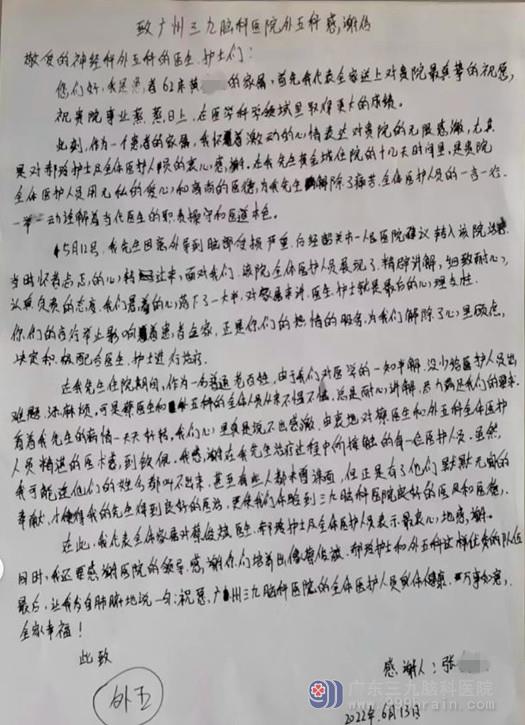 致广州三九脑科医院外五科感谢信
敬爱的神经科外五科的医生、护士们:
您们好,我是患者62床黄 的家属,首先我代表全家送上对贵院最真挚的祝愿,
祝贵院事业蒸蒸日上,在医学科学领域里取得更大的成绩。
此刻,作为一个患者的家属,我怀着激动的心情表达对贵院的无限感激,尤其
是对 护士及全体医护人员的衷心感谢。在我先生黄金城住院的十几天时间里,是贵院
全体医护人员用无私的爱心和高尚的医德,为我先生解除了痛苦,全体医护人员的一言一行、
一举一动诠释着当代医生的职责操守和医道本色。
5月12号,我先生因意外导到脑部受损严重,后经韶关市一人民医院建议转入该院治疗
当时怀着忐忑的心转过来,面对我们,该院全体医护人员展现了精辟讲解,细致耐心,
认真负责的态度,我们悬着的心落下了一大半,对家属来讲,医生护士就是最后的心理支柱。
你们的言行举止影响着患者全家,正是你们的热情的服务,为我们解除了心里顾虑,
决定积极配合医生、护士进行治疗。
在我先生住院期间,作为一名普通老百姓,由于我们对医学的一知半解,没少给医护人员出
难题、添麻烦,可是蔡医生和外五科的全体人员从来不惜不恼,总是耐心讲解,尽力满足我们的要求。
看着我先生的病情一天天好转,我们心里真是说不出感激,由衷地对蔡医生和外五科全体医护
人员精湛的医术感到钦佩。我感谢在我先生治疗过程中所接触的每一位医护人员。虽然,
我可能连他们的姓名都叫不出来,甚至有些人都未曾谋面,但正是有了他们默默无闻的
奉献,才使得我的先生得到良好的医治,更使我们体验到三九脑科医院良好的医风和医德,
在此,我代表全体家属对蔡 医生、 护士及全体医护人员表示最衷心地感谢。
同时,我还要感谢医院的领导,感谢你们培养出像蔡 护士和外五科这样优秀的队伍
最后,让我发自肺腑地说一句:祝愿,广州三九脑科医院的全体医护人员身体健康、万事如意,
全家幸福!
此致
外五
感谢人:张
2022年6月13日
广东三九脑科医院
www.999brain.com